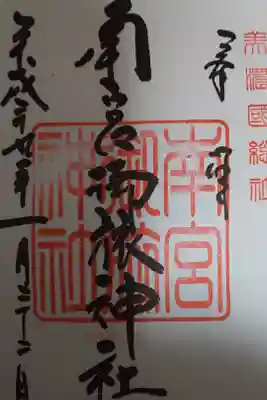 美濃國総社
奉拝
南宮御旅神社
南宮御旅神社
平成 年一月二十二日